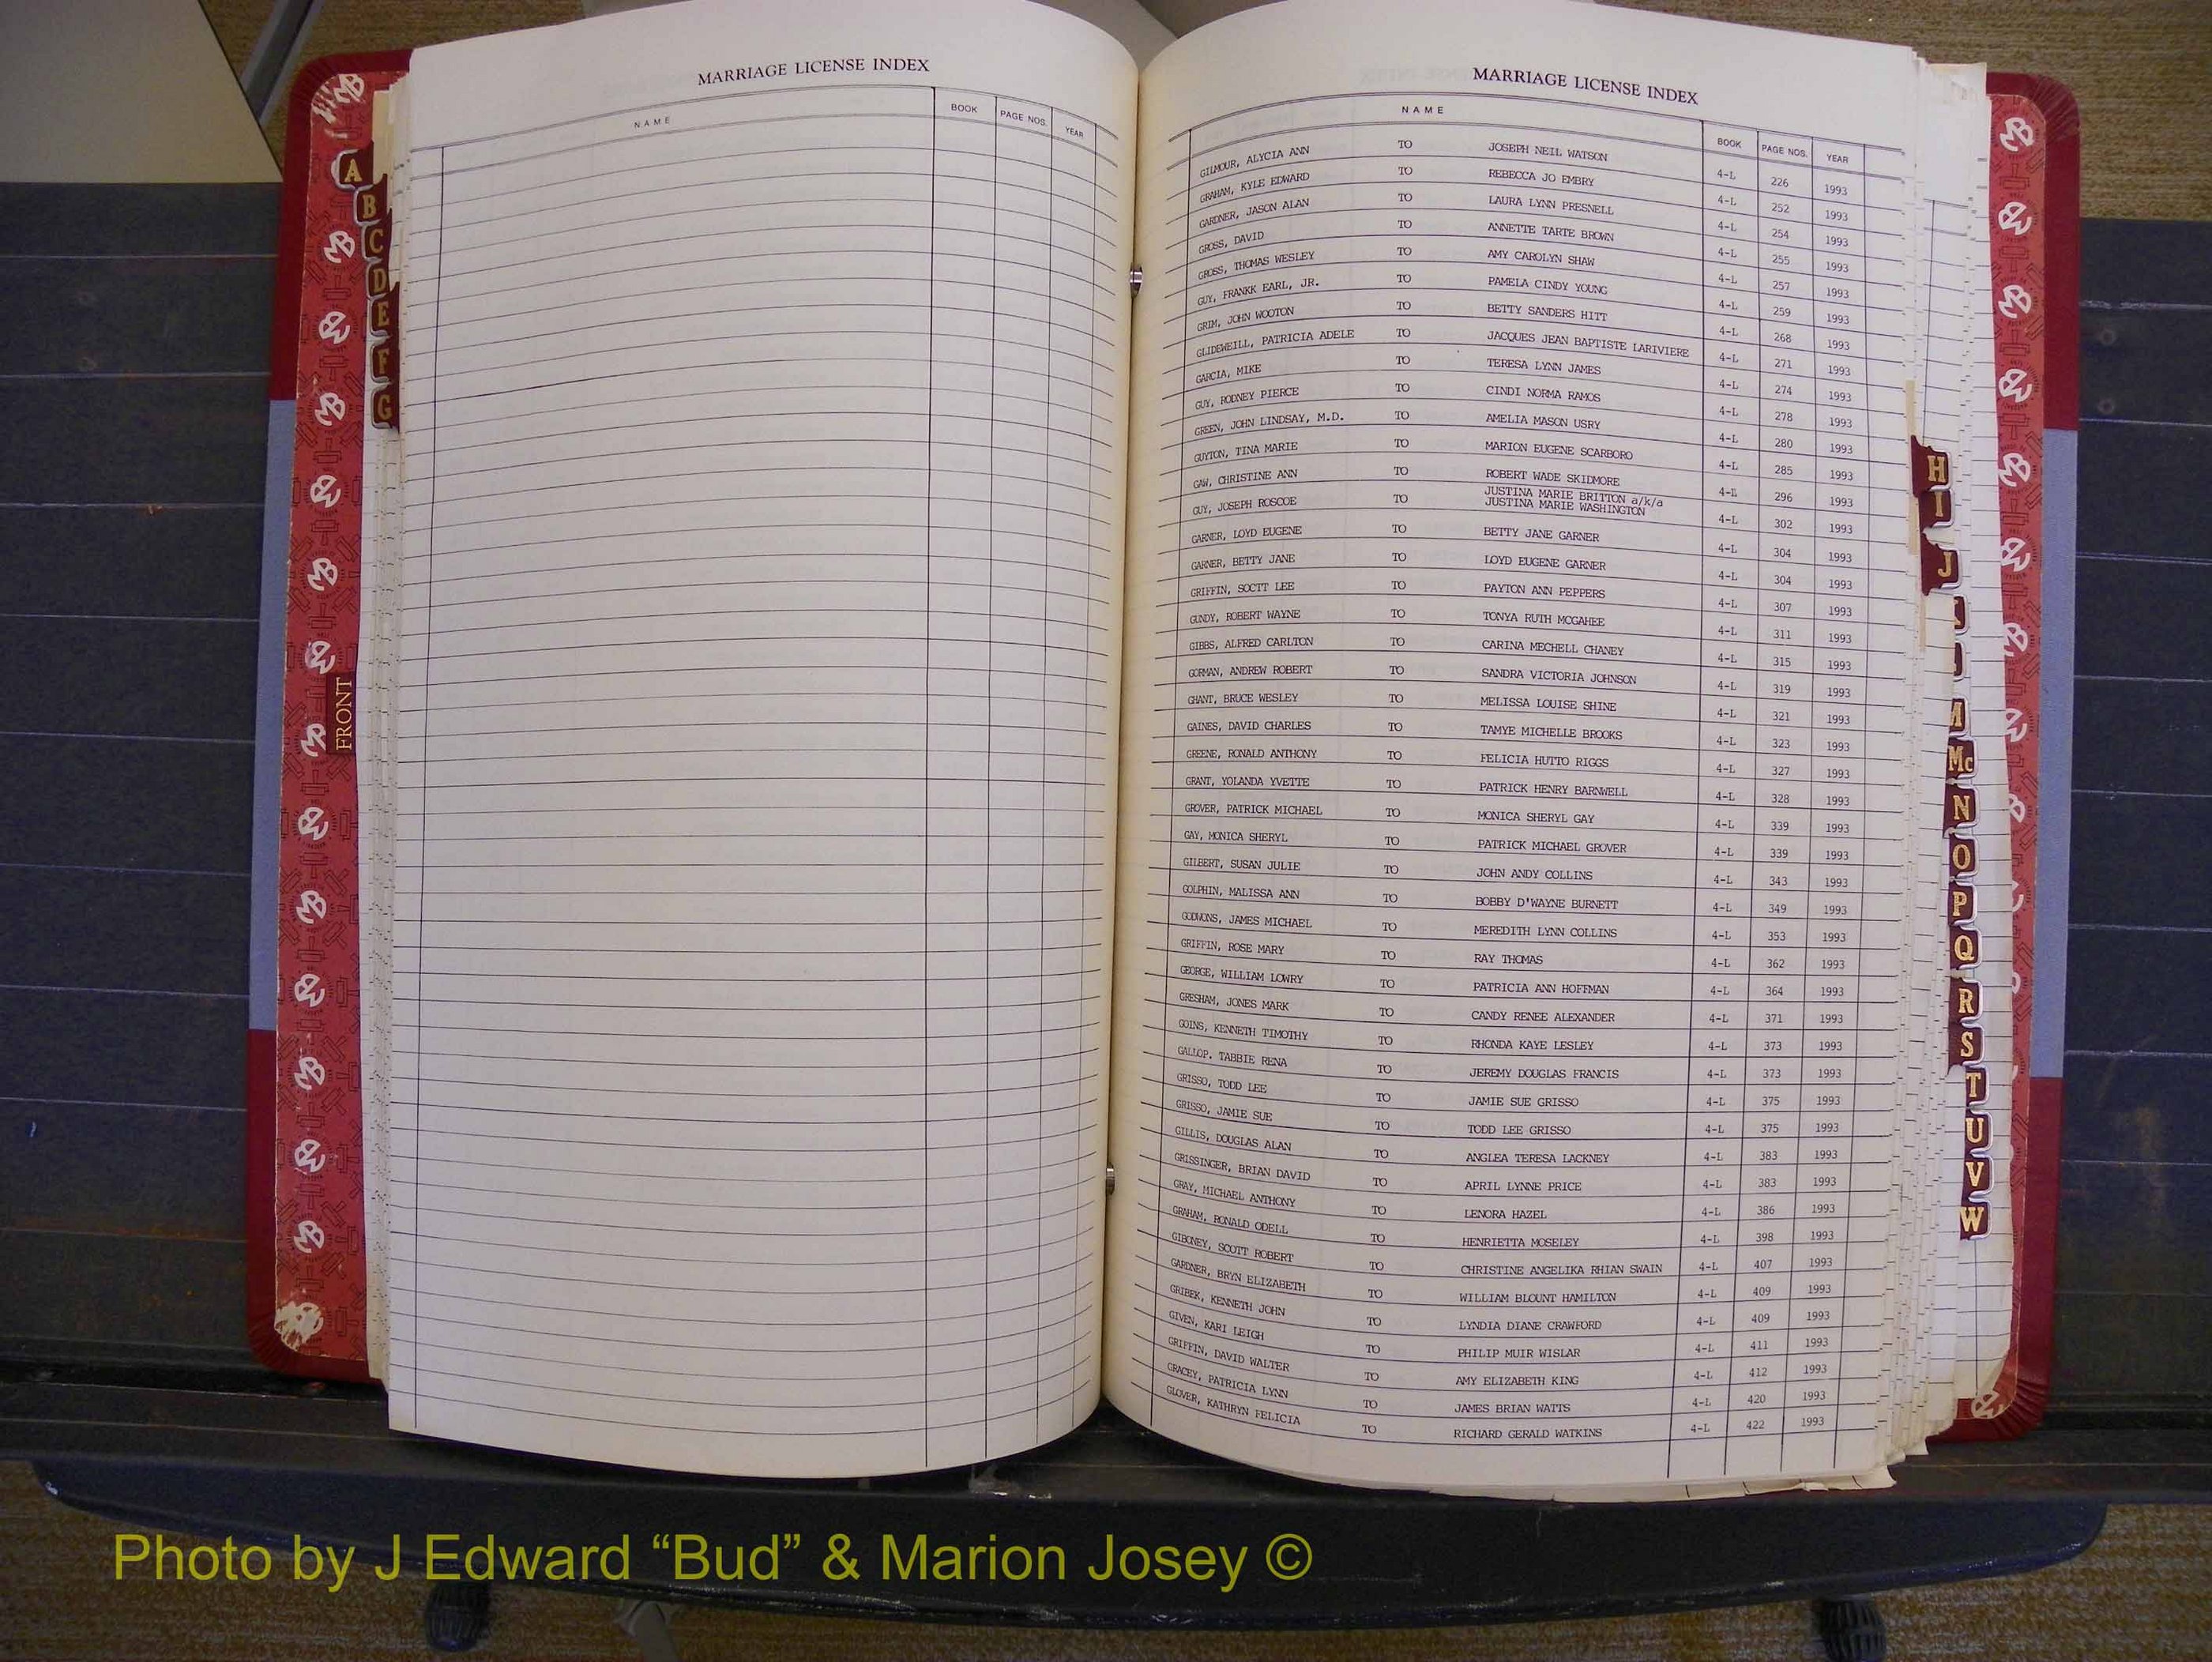 MARRIAGE LICENSE INDEX
NAME BOOK PAGE NOS. YEAR
MARRIAGE LICENSE INDEX
NAME BOOK PAGE NOS. YEAR
GILMOUR, ALYCIA ANN TO JOSEPH NEIL WATSON 4-L 226 1993
GRAHAM, KYLE EDWARD TO REBECCA JO EMBRY 4-L 252 1993
GARDNER, JASON ALAN TO LAURA LYNN PRESNELL 4-L 254 1993
GROSS, DAVID TO ANNETTE TARTE BROWN 4-L 255 1993
GROSS, THOMAS WESLEY TO AMY CAROLYN SHAW 4-L 257 1993
GUY, FRANKK EARL, JR. TO PAMELA CINDY YOUNG 4-L 259 1993
GRIM, JOHN WOOTON TO BETTY SANDERS HITT 4-L 268 1993
GLIDEWEILL, PATRICIA ADELE TO JACQUES JEAN BAPTISTE LARIVIERE 4-L 271 1993
GARCIA, MIKE TO TERESA LYNN JAMES 4-L 274 1993
GUY, RODNEY PIERCE TO CINDI NORMA RAMOS 4-L 278 1993
GREEN, JOHN LINDSAY, M.D. TO AMELIA MASON USRY 4-L 280 1993
GUYTON, TINA MARIE TO MARION EUGENE SCARBORO 4-L 285 1993
GAW, CHRISTINE ANN TO ROBERT WADE SKIDMORE 4-L 296 1993
GUY, JOSEPH ROSCOE TO JUSTINA MARIE BRITTON a/k/a
JUSTINA MARIE WASHINGTON 4-L 302 1993
GARNER, LOYD EUGENE TO BETTY JANE GARNER 4-L 304 1993
GARNER, BETTY JANE TO LOYD EUGENE GARNER 4-L 304 1993
GRIFFIN, SOCTT LEE TO PAYTON ANN PEPPERS 4-L 307 1993
GUNDY, ROBERT WAYNE TO TONYA RUTH MCGAHEE 4-L 311 1993
GIBBS, ALFRED CARLTON TO CARINA MECHELL CHANEY 4-L 315 1993
GORMAN, ANDREW ROBERT TO SANDRA VICTORIA JOHNSON 4-L 319 1993
GHANT, BRUCE WESLEY TO MELISSA LOUISE SHINE 4-L 321 1993
GAINES, DAVID CHARLES TO TAMYE MICHELLE BROOKS 4-L 323 1993
GREENE, RONALD ANTHONY TO FELICIA HUTTO RIGGS 4-L 327 1993
GRANT, YOLANDA YVETTE TO PATRICK HENRY BARNWELL 4-L 328 1993
GROVER, PATRICK MICHAEL TO MONICA SHERYL GAY 4-L 339 1993
GAY, MONICA SHERYL TO PATRICK MICHAEL GROVER 4-L 339 1993
GILBERT, SUSAN JULIE TO JOHN ANDY COLLINS 4-L 343 1993
GOLPHIN, MALISSA ANN TO BOBBY D'WAYNE BURNETT 4-L 349 1993
GODWONS, JAMES MICHAEL TO MEREDITH LYNN COLLINS 4-L 353 1993
GRIFFIN, ROSE MARY TO RAY THOMAS 4-L 362 1993
GEORGE, WILLIAM LOWRY TO PATRICIA ANN HOFFMAN 4-L 364 1993
GRESHAM, JONES MARK TO CANDY RENEE ALEXANDER 4-L 371 1993
GOINS, KENNETH TIMOTHY TO RHONDA KAYE LESLEY 4-L 373 1993
GALLOP. TABBIE RENA TO JEREMY DOUGLAS FRANCIS 4-L 373 1993
GRISSO, TODD LEE TO JAMIE SUE GRISSO 4-L 375 1993
GRISSO, JAMIE SUE TO TODD LEE GRISSO 4-L 375 1993
GILLIS, DOUGLAS ALAN TO ANGLEA TERESA LACKNEY 4-L 383 1993
GRISSINGER, BRIAN DAVID TO APRIL LYNNE PRICE 4-L 383 1993
GRAY, MICHAEL ANTHONY TO LENORA HAZEL 4-L 386 1993
GRAHAM, RONALD ODELL TO HENRIETTA MOSELEY 4-L 398 1993
GIBONEY, SCOTT ROBERT TO CHRISTINE ANGELIKA RHIAN SWAIN 4-L 407 1993
GARDNER, BRYN ELIZABETH TO WILLIAM BLOUNT HAMILTON 4-L 409 1993
GRIBEK, KENNETH JOHN TO LYNDIA DIANE CRAWFORD 4-L 409 1993
GIVEN, KARI LEIGH TO PHILIP MUIR WISLAR 4-L 411 1993
GRIFFIN, DAVID WALTER TO AMY ELIZABETH KING 4-L 412 1993
GRACEY, PATRICIA LYNN TO JAMES BRIAN WATTS 4-L 420 1993
GLOVER, KATHRYN FELICIA TO RICHARD GERALD WATKINS 4-L 422 1993
A
B
C
D
E
F
G
FRONT
H
I
J
M
Mc
N
O
P
Q
R
S
T
U
V
W
Photo by J Edward “Bud” & Marion Josey ©